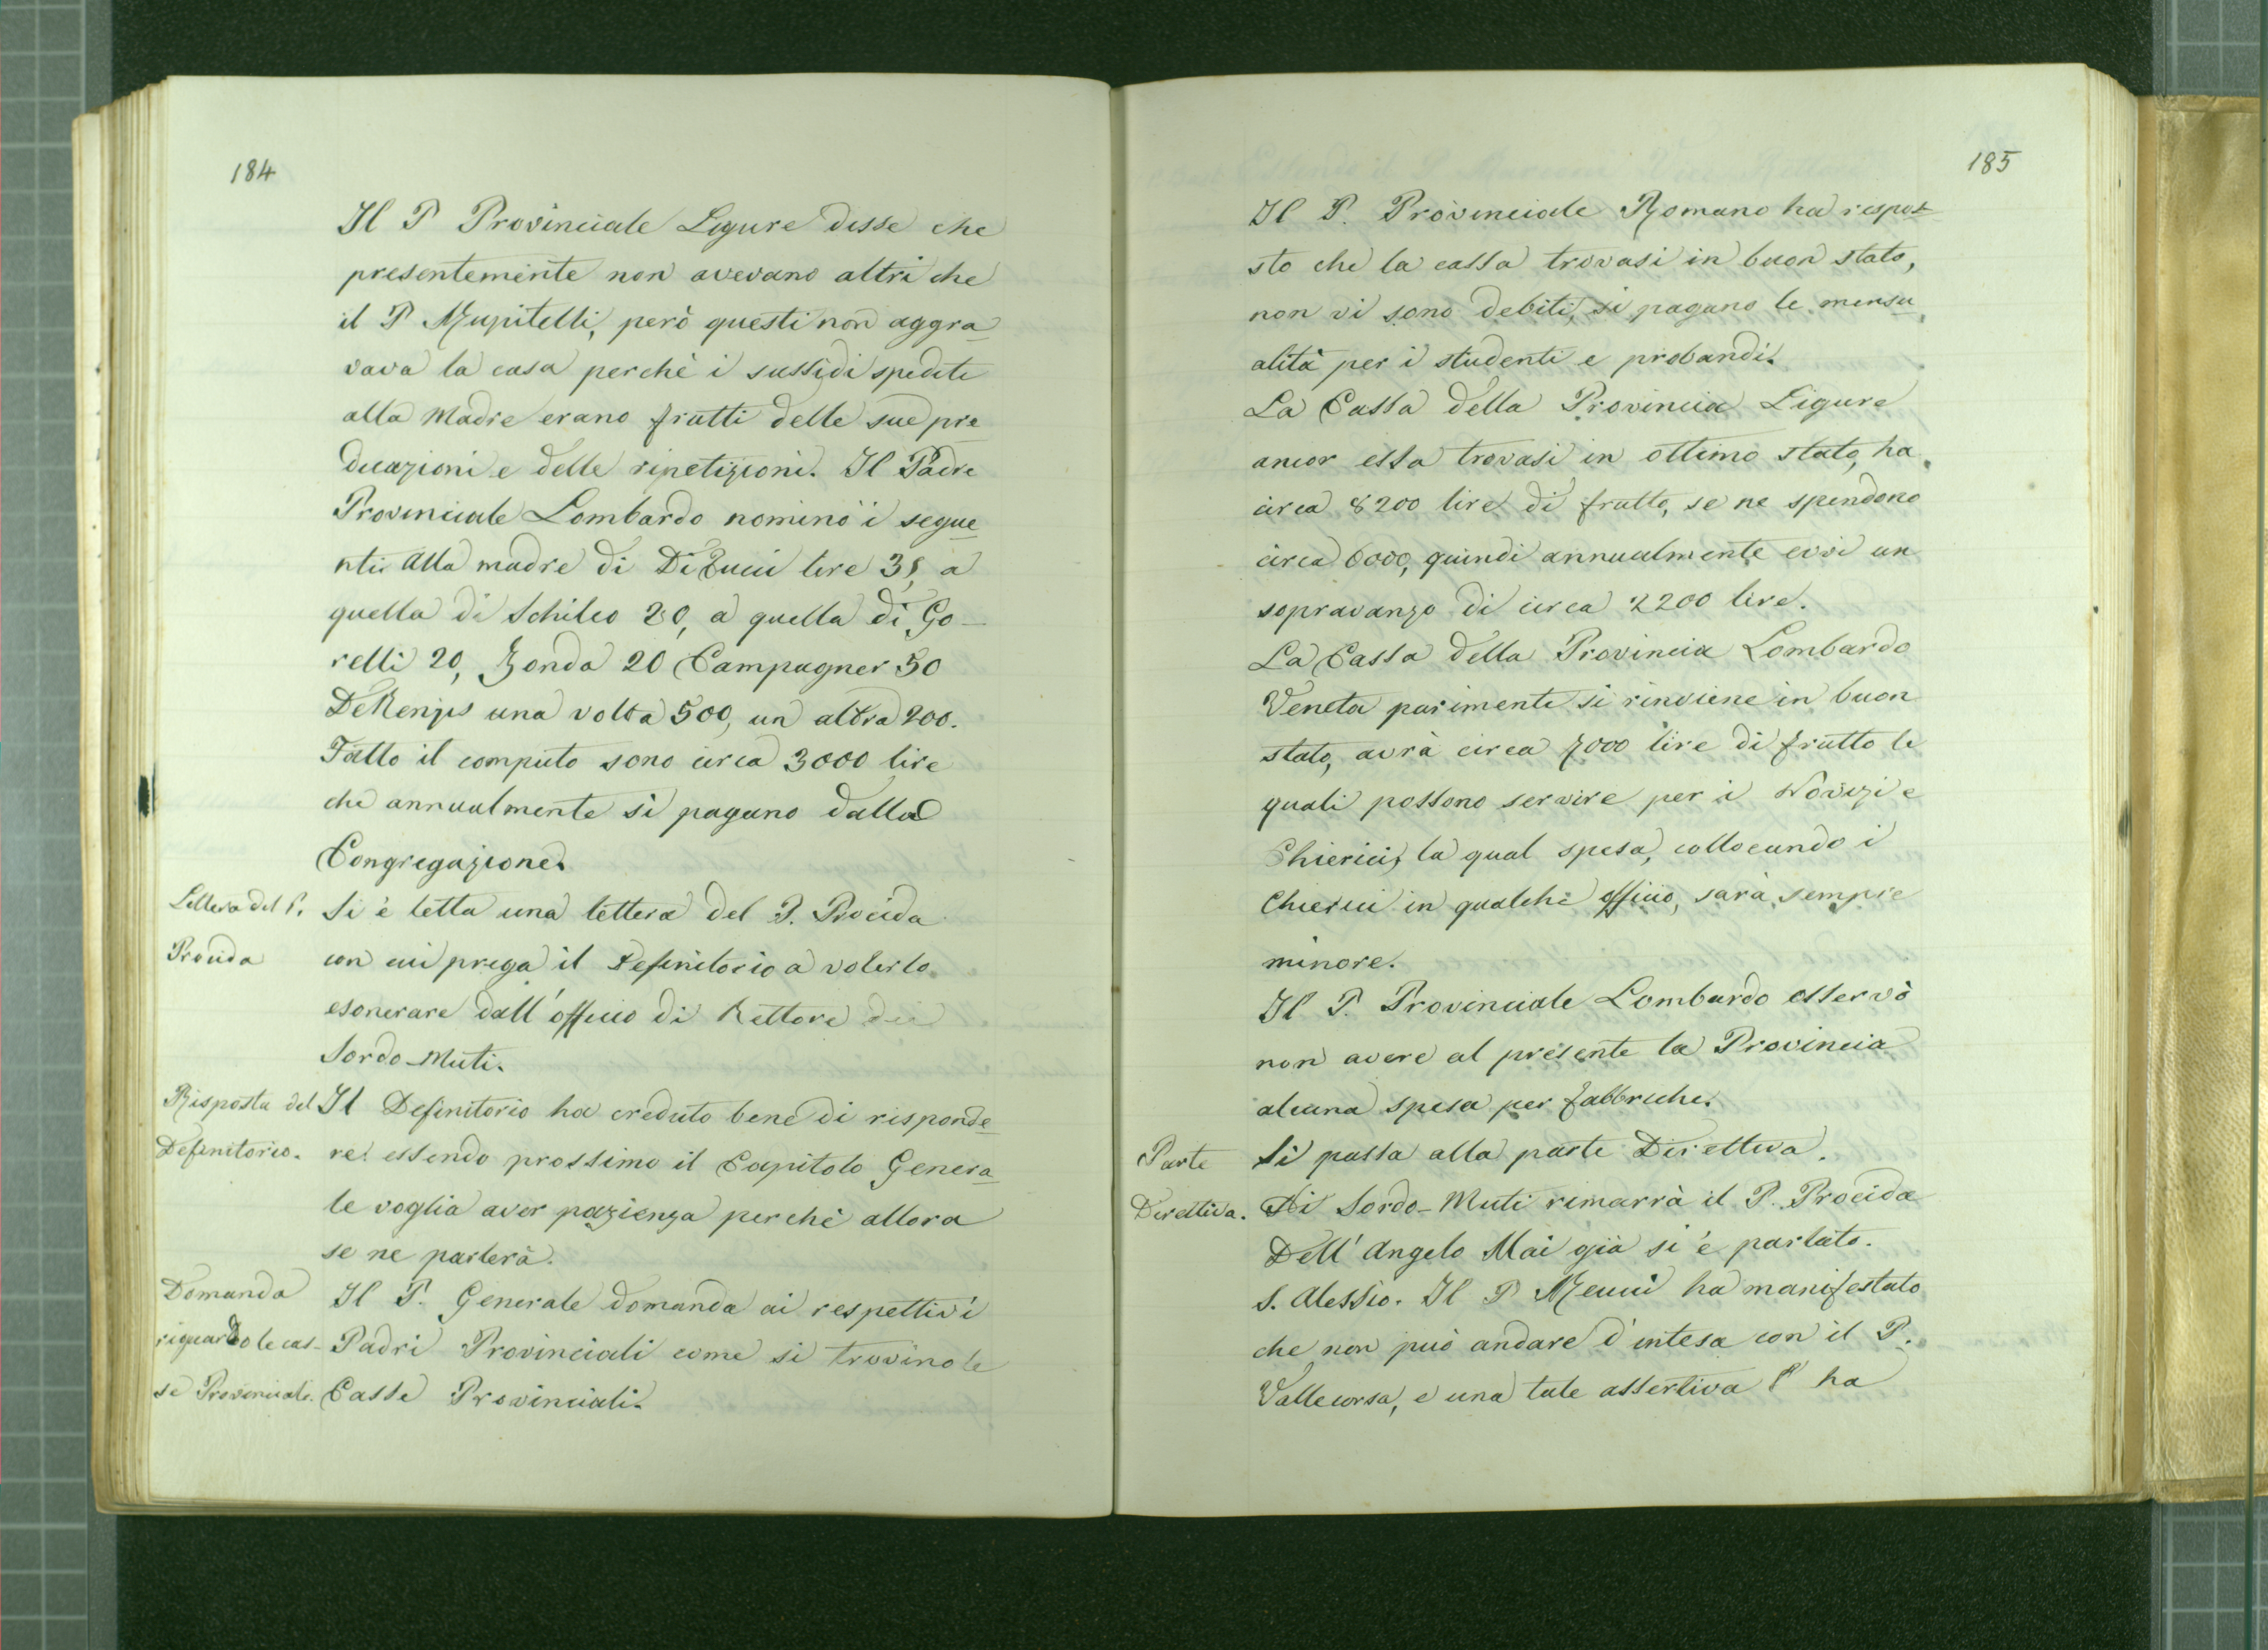 184
Il P Provinciale Ligure disse che
presentemente non avevano altri che
il P Mupitelli, però questi non aggra
vava la casa perchè i sussidi spediti
alla Madre erano frutti delle sue pre
dicazioni e delle ripetizioni. Il Padre
Provinciale Lombardo nominò i segue
nti. Alla madre di Di Tucci lire 35, a
quella di Schileo 20, a quella di Go-
relli 20, Zonda 20 Campagner 50
De Renzis una volta 500, un altra 200.
Fatto il computo sono circa 3000 lire
che annualmente si pagano dalla
Congregazione.
Lettera del P.
Procida
Si è letta una lettera del P. Procida
con cui prega il Definitorio a volerlo
esonerare dall'officio di Rettore dei
Sordo-Muti.
Risposta del
Definitorio.
Il Definitorio ha creduto bene di risponde
re: essendo prossimo il Capitolo Genera
le voglia aver pazienza perchè allora
se ne parlerà.
Domanda
riguardo le cas-
se Provinciali.
Il P. Generale domanda ai respettivi
Padri Provinciali come si trovino le
Casse Provinciali.
185
Il P. Provinciale Romano ha rispos
sto che la cassa trovasi in buon stato,
non vi sono debiti, si pagano le mensu
alità per i studenti e probandi.
La Cassa della Provincia Ligure
ancor essa trovasi in ottimo stato, ha
circa 8200 lire di frutto, se ne spendono
circa 6000, quindi annualmente evvi un
sopravanzo di circa 2200 lire.
La Cassa della Provincia Lombardo
Veneta parimente si rinviene in buon
stato, avrà circa 7000 lire di frutto le
quali possono servire per i Novizi e
Chierici, la qual spesa, collocando i
Chierici in qualche officio, sarà sempre
minore.
Il P. Provinciale Lombardo osservò
non avere al presente la Provincia
alcuna spesa per fabbriche.
Parte
Direttiva.
Si passa alla parte Direttiva.
Ai Sordo-Muti rimarrà il P. Procida
Dell'Angelo Mai già si è parlato.
S. Alessio. Il P Meucci ha manifestato
che non può andare d'intesa con il P.
Vallecorsa, e una tale assertiva l'ha